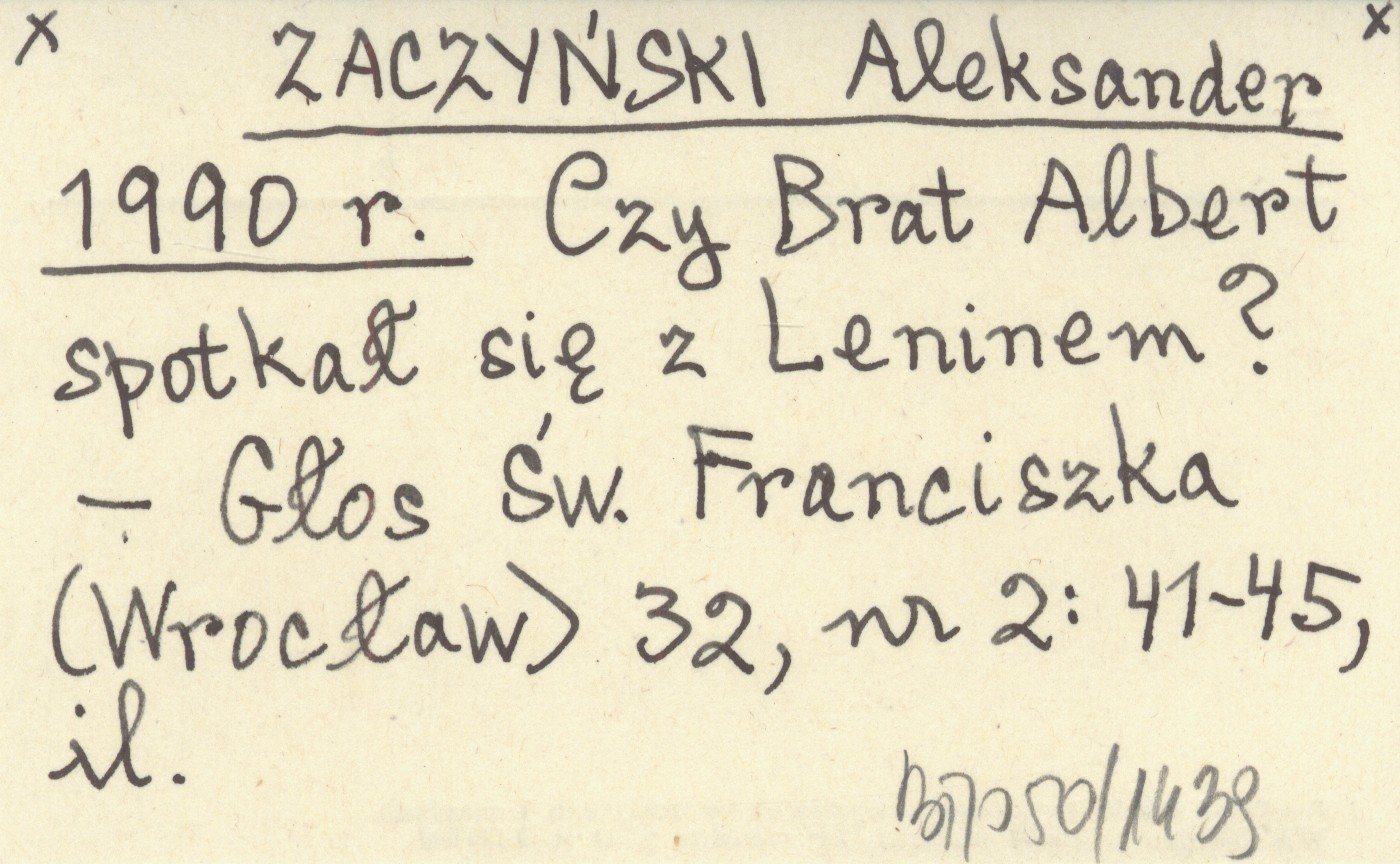 x ZACZYŃSKI Aleksander x
1990 r. Czy Brat Albert
spotkał się z Leninem?
— Głos Św. Franciszka
(Wrocław) 32, nr 2: 41-45,
il.
50/1439